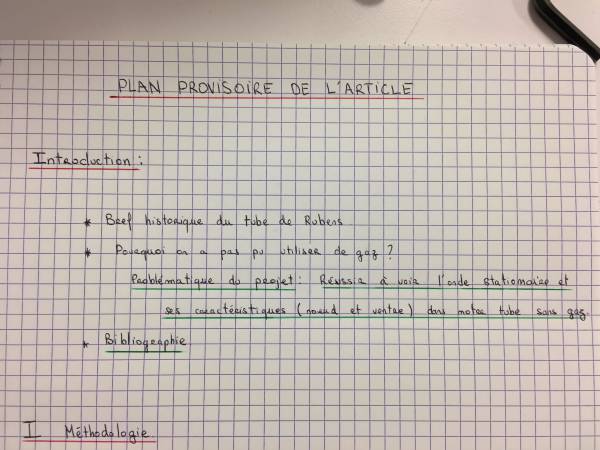 PLAN PROVISOIRE DE L'ARTICLE
Introduction :
* Bref historique du tube de Rubens
* Pourquoi on a pas pu utiliser de gaz ?
Problématique du projet : Réussir à voir l'onde stationnaire et
ses caractéristiques (noeud et ventre) dans notre tube sans gaz.
* Bibliographie
I Méthodologie